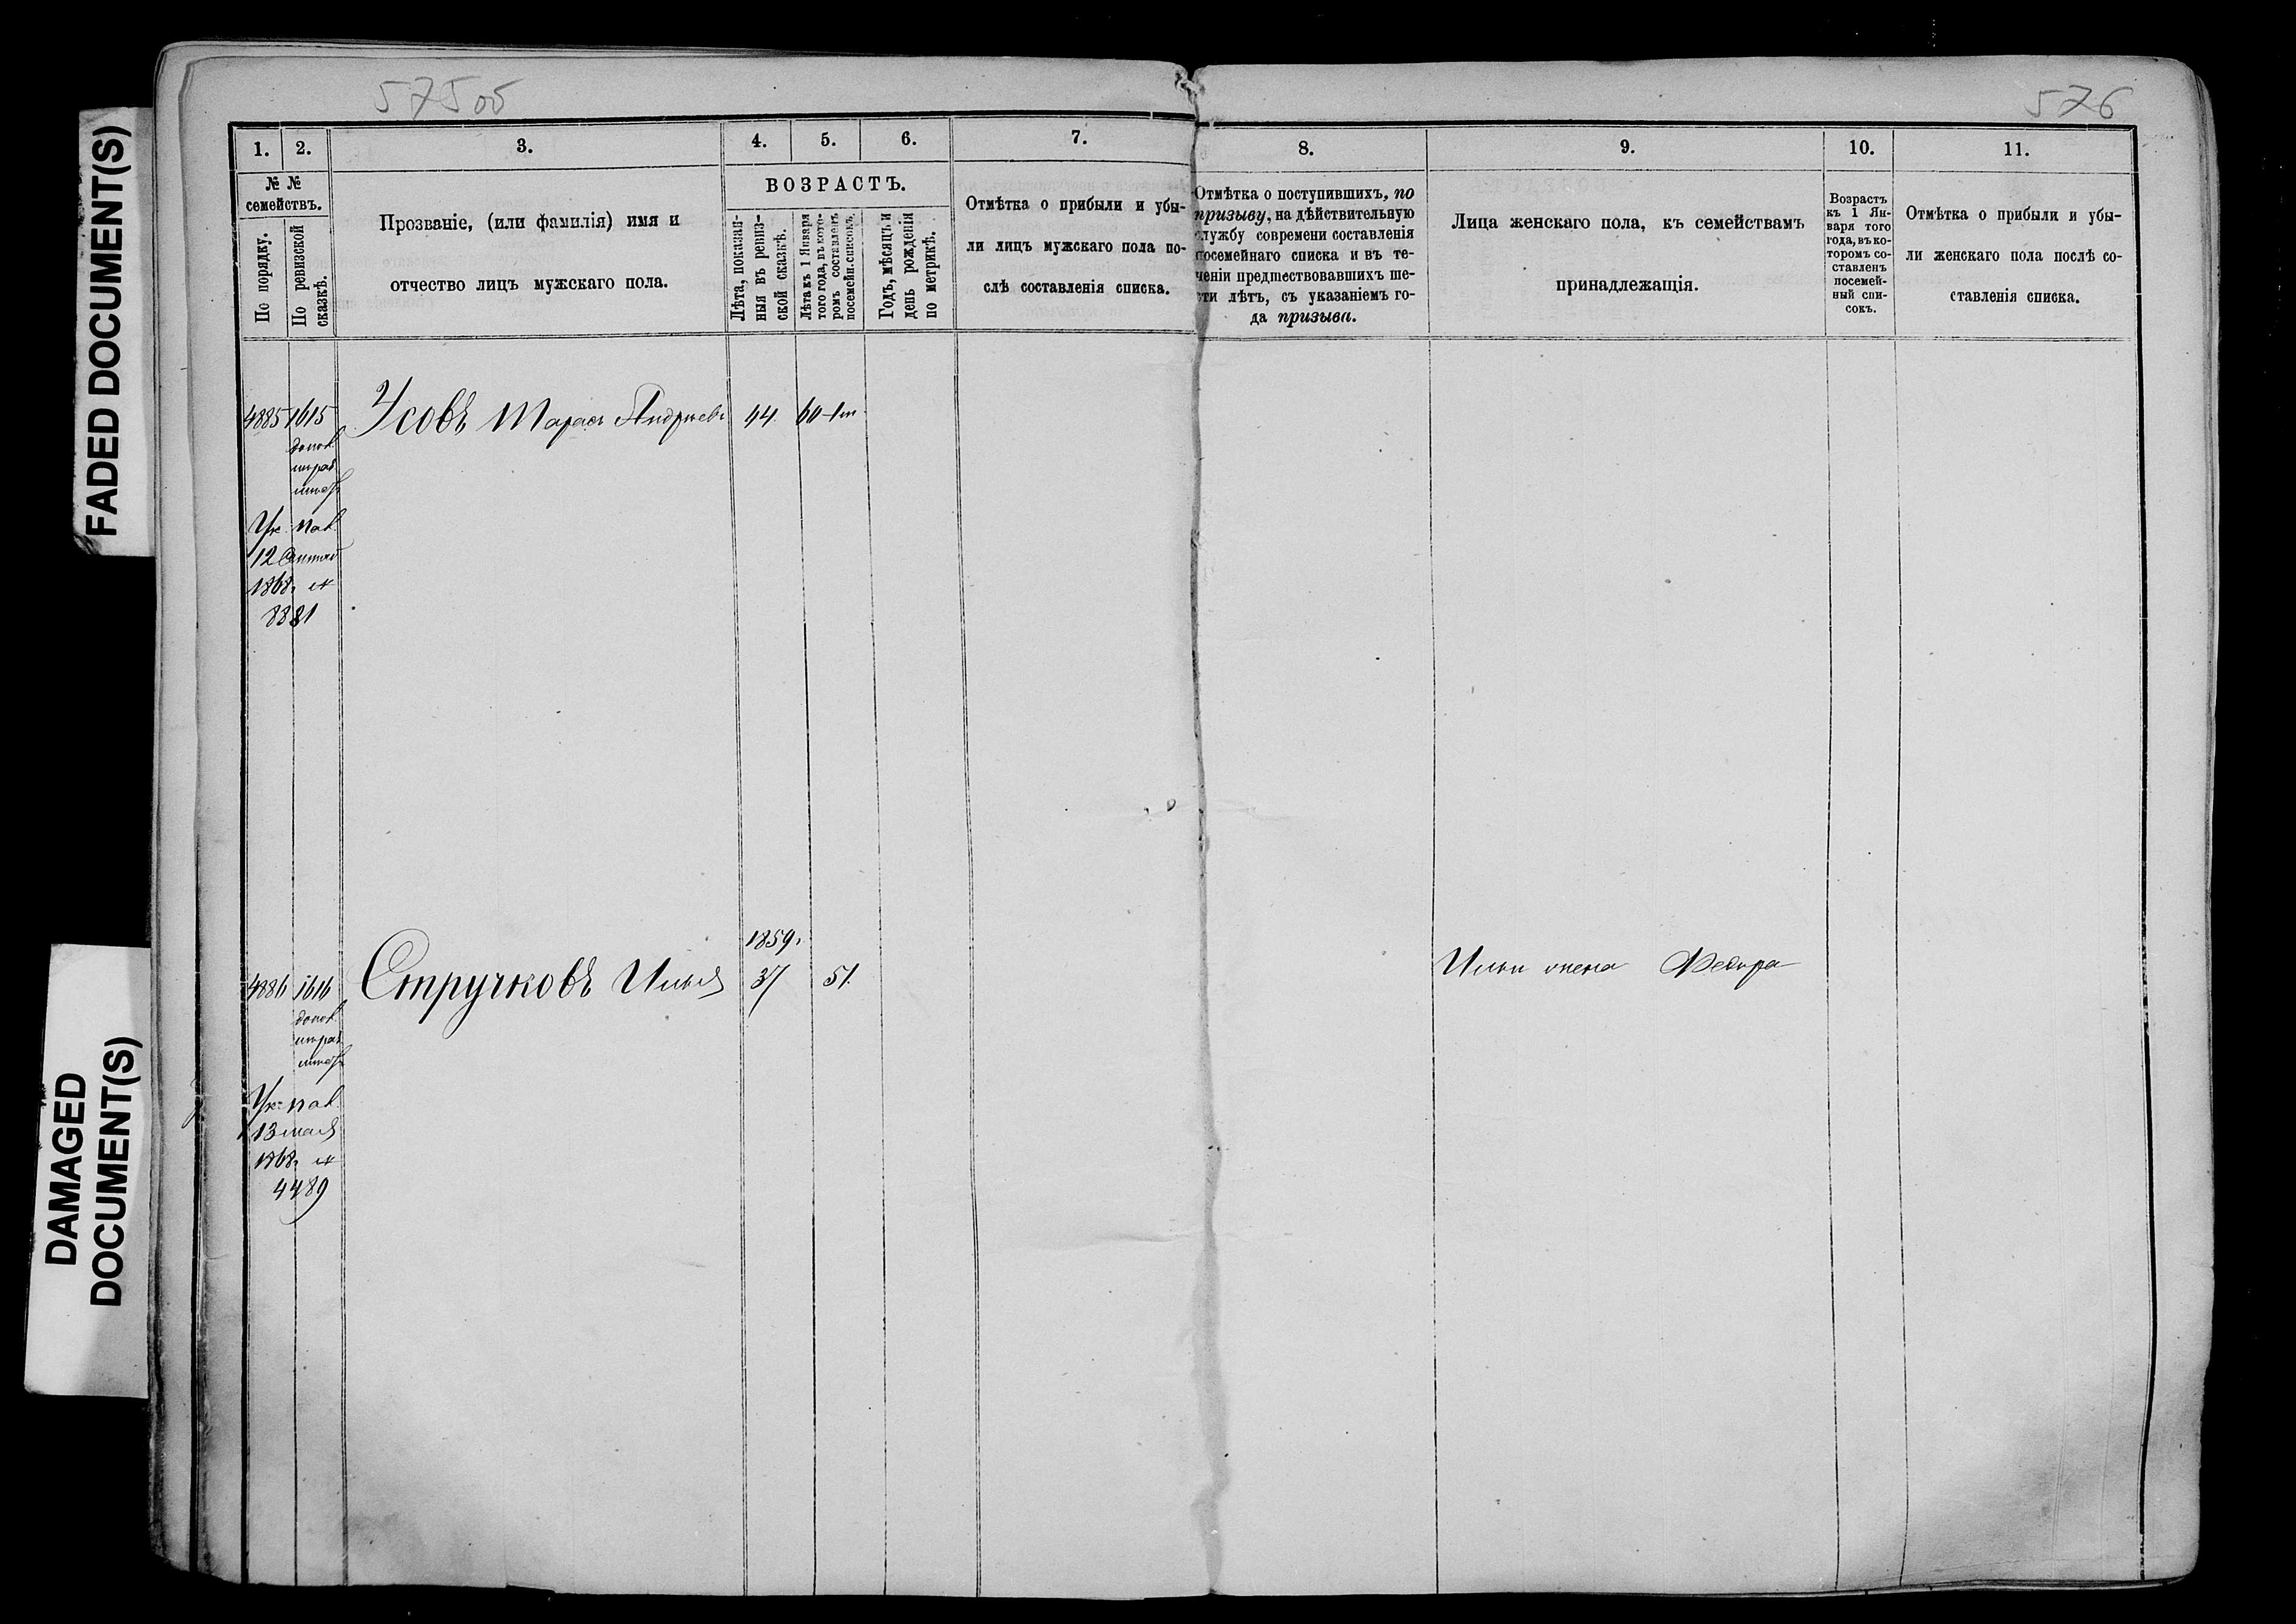 575 об
576
FADED DOCUMENT(S)
DAMAGED
DOCUMENT(S)
1.
2.
3.
4.
5.
6.
7.
8.
9.
10.
11.
№ №
семействъ.
По порядку.
По ревизской
сказкѣ.
Прозваніе, (или фамилія) имя и
отчество лицъ мужскаго пола.
ВОЗРАСТЪ.
Лѣта, показан-
ныя въ ревиз-
ской сказкѣ.
Лѣта къ 1 Января
того года, въ кото-
ромъ составленъ
посемейн. списокъ.
Годъ, мѣсяцъ и
день рожденія
по метрикѣ.
Отмѣтка о прибыли и убы-
ли лицъ мужскаго пола по-
слѣ составленія списка.
Отмѣтка о поступившихъ, по
призыву, на дѣйствительную
службу современи составленія
посемейнаго списка и въ те-
ченіи предшествовавшихъ ше-
сти лѣтъ, съ указаніемъ го-
да призыва.
Лица женскаго пола, къ семействамъ
принадлежащія.
Возрастъ
къ 1 Ян-
варя того
года, въ ко-
торомъ со-
ставленъ
посемей-
ный спи-
сокъ.
Отмѣтка о прибыли и убы-
ли женскаго пола послѣ со-
ставленія списка.
4885 1615 Усовъ Тарасъ Андреевъ 44 60
допол.
Ук. пал.
12
1868г. №
8881
1859г.
4886 1616 Стручковъ Илья 37 51.
Ильи жена Федора
допол.
Ук. пал.
13 мая
1868г. №
4489